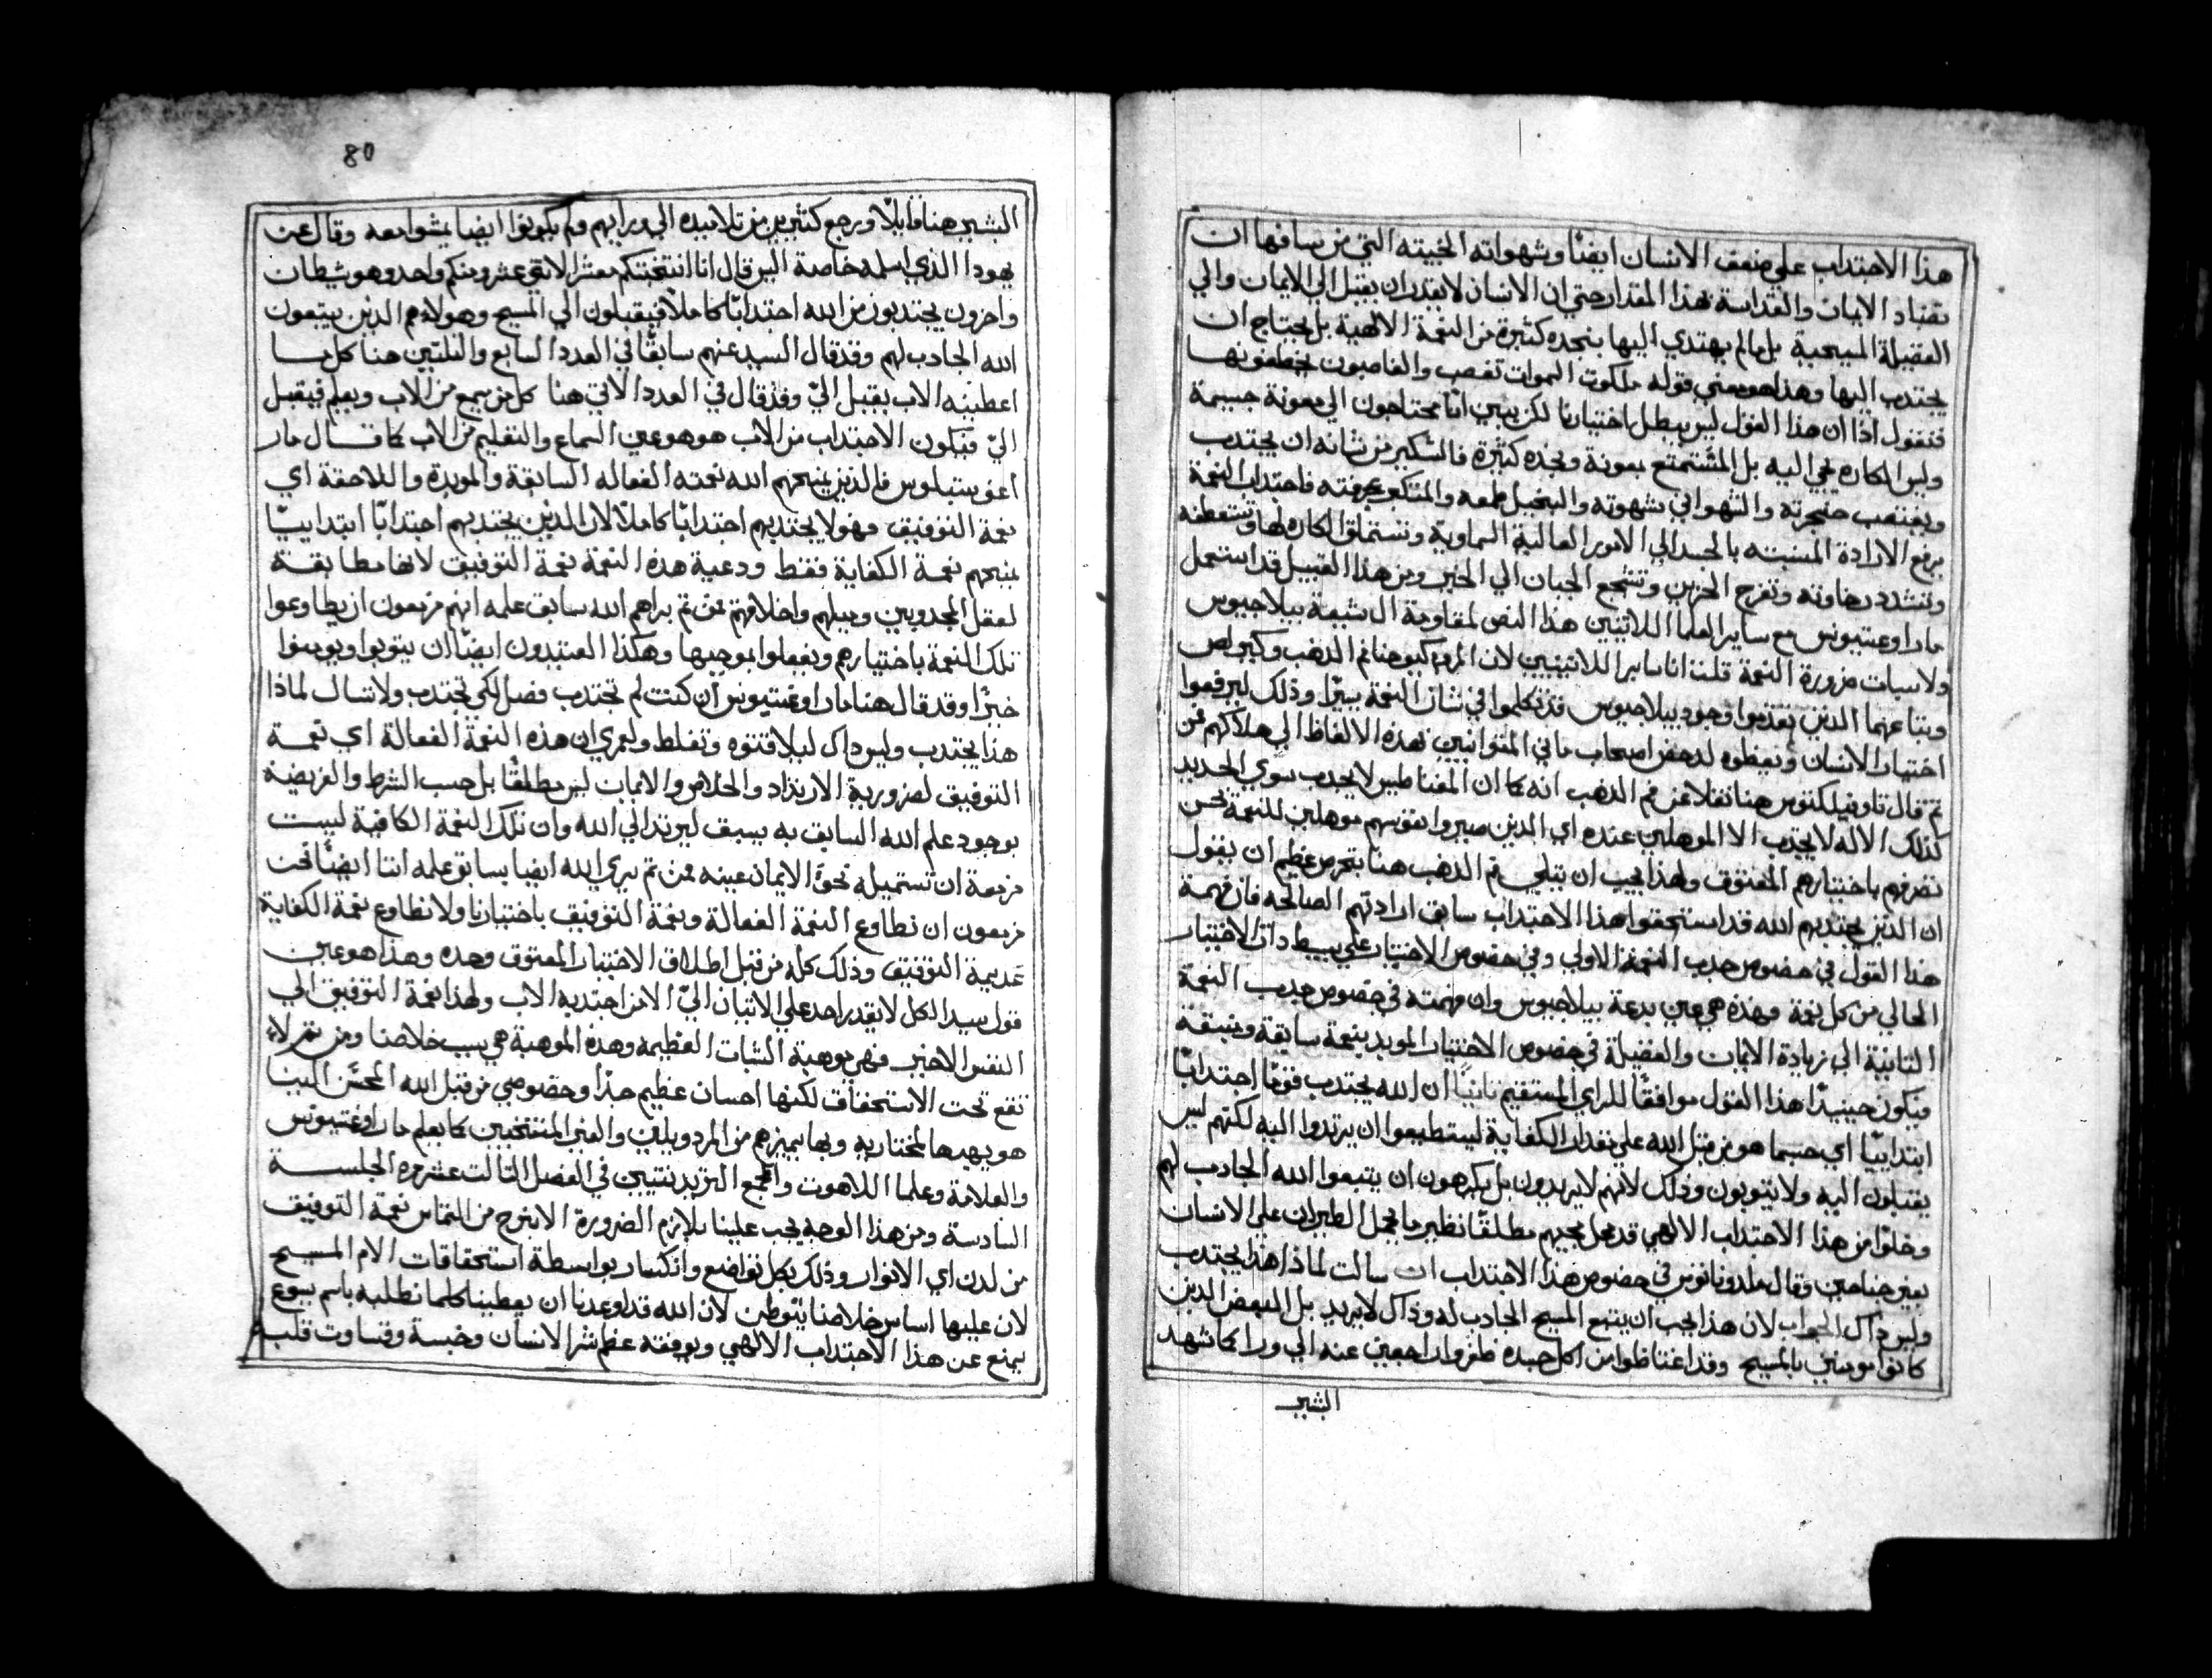 هذا الاجتداب علي ضعف الانسان ايضًا وشهواته الخبيته التي من سافها ان
تقتاد الايمان والقداسة بهذا المقدار حتي ان الانسان لا يقدر ان يقبل الي الايمان والي
الفضيلة المسيحية بل ما لم يهتدي اليها بنجده كثيرة من النعمة الالهية بل يحتاج ان
يجتدب اليها وهذا هو معني قوله ملكوت السموات تغصب والغاصبون يخطفونها
فنقول اذا ان هذا القول ليس يبطل اختيارنا لكن يبين اننا محتاجون الي معونة جسيمة
وليس الكاره يجي اليه بل المستمتع بمعونة ونجده كثيرة فالسكير من شانه ان يجتدب
ويغتصب حنجرته والشهواني شهوته والبخيل طمعه والمتكبر عجرفته فاجتداب النعمة
يرفع الارادة المتشبته بالجسد الي الامور العالية السماوية وتستملق الكاره لها وتستعطفه
وتشدد رخاوته وتفرج الحزين وتشجع الجبان الي الخير ومن هذا القبيل قد استعمل
مار اوغستينوس مع ساير العلما اللاتنيين هذا النص لمقاومة ال شيعة بيلاجيوس
ولاثبات ضرورة النعمة قلت انا ساير اللاتينيين لان المرو كيوحنا فم الدهب وكيرلص
وتباعهما الدين تقدموا وجود بيلاجيوس قد تكلموا في شان النعمة يسيرًا وذلك ليرفعوا
اختيار الانسان ويعظوه لدحض اصحاب ماني المتوانيين بهذه الالفاظ الي هلاكهم فمن
تم قال تاوفيلكتوس هنا نقلا عن فم الدهب انه كما ان المغناطيس لا يجدب سوي الحديد
كذلك الاله لا يجدب الا الموهلين عنده اي الدين صيروا نفوسهم موهلين للنعمة بحسن
تصرفهم باختيارهم المعتوق ولهذا يجب ان يتلي فم الدهب هنا بتحرص عظيم ان يقول
ان الدين يجتدبهم الله قد استحقوا هذا الاجتداب سابق ارادتهم الصالحه فان فهمة
هذا القول في خصوص جدب النعمة الاولي وفي خصوص الاختيار علي بسيط دات الاختيار
الخالي من كل نعمة فهذه هي عين بدعة بيلاجيوس وان فهمته في خصوص جدب النعمة
التانية الي زيادة الايمان والفضيلة في خصوص الاختيار المويد بنعمة سابقة
فيكون حينيدًا هذا القول موافقًا للراي المستقيم تانيًا ان الله يجتدب قومًا اجتدابًا
ابتداييًا اي حسبما هو من قبل الله علي مقدار الكفاية ليستطيعوا ان يرتدوا اليه لكنهم ليس
يقبلون اليه ولا يتوبون وذلك لانهم لا يريدون بل يكرهون ان يتبعوا الله الجادب لهم
وخلوًا من هذا الاجتداب الالهي قد يحل مجيهم مطلقًا نظير ما يحل الطيران علي الانسان
بغير جناحين وقال ملدوناتوس في خصوص هذا الاجتداب ان سالت لماذا هذا يجتدب
وليس داك الجواب لان هذا يحب ان يتبع المسيح الجادب له وداك لا يريد بل البعض الدين
كانوا مومنين بالمسيح وقد اغتاظوا من اكل جسده طفروا راجعين عنه الي ورا كما شهد
البشير
80
البشير هنا قايلًا ورجع كثيرين من تلاميده الي ورايهم ولم يكونوا ايضا يمشوا معه وقال عن
يهودا الذي اسلمه خاصة اليس قال انا انتخبتكم معشر الاتني عشر ومنكم واحد وهو شيطان
واخرون يجتدبون من الله اجتدابًا كاملًا فيقبلون الي المسيح وهولاء هم الذين يتبعون
الله الجادب لهم وقد قال السيد عنهم سابقًا في العدد السابع والتلتين هنا كل ما
اعطينيه الاب يقبل اليّ وقد قال في العدد الاتي هنا كل من يسمع من الاب ويعلم فيقبل
اليّ فيكون الاجتداب من الاب هو هو عين السماع والتعليم من الاب كما قال مار
اغوستينوس فالذين يمنحهم الله نعمته الفعاله السابقة والمويدة واللاحقة اي
نعمة التوفيق فهولا يجتدبهم اجتدابًا كاملًا لان الذين يجتدبهم اجتدابًا ابتداييًا
يمنحهم نعمة الكفاية فقط ودعية هذه النعمة نعمة التوفيق لانها مطابقة
لعقل المجدوبين وميلهم واخلاقهم فمن تم يراهم الله سابق علمه انهم مزمعون ان يطاوعوا
تلك النعمة باختيارهم ويفعلوا بموجبها وهكذا العتيدون ايضًا ان يتوبوا ويومنوا
خيرًا وقد قال هنا مار اوغستينوس ان كنت لم تجتدب فصل لكي تجتدب ولا تسال لماذا
هذا يجتدب وليس داك ليلا تتوه وتغلط ولعمري ان هذه النعمة الفعالة اي نعمة
التوفيق لضرورية الارتداد والخلاص والايمان ليس مطلقًا بل حسب الشرط والفريضة
بوجود علم الله السابق به يسبق ليرتد الي الله وان تلك النعمة الكافية ليست
مزمعة ان تستميله نحو الايمان عينه فمن تم يري الله ايضا بسابق علمه اننا ايضًا نحن
مزمعون ان نطاوع النعمة الفعالة ونعمة التوفيق باختيارنا ولا نطاوع نعمة الكفاية
عديمة التوفيق وذلك كله من قبل اطلاق الاختيار المعتوق وحده وهذا هو عين
قول سيد الكل لا يقدر احد علي الاتيان اليّ الا من اجتدبه الاب ولهذا نعمة التوفيق الي
النفس الاخير فهي موهبة الثبات العظيمة وهذه الموهبة هي سبب خلاصنا ومن تم لا
تقع تحت الاستحقاق لكنها احسان عظيم جدًا وخصوصي من قبل الله المحسن الينا
هو يهبها لمختاريه وبها يميزهم من المردويلين والغير المنتخبين كما يعلم مار اوغستينوس
والعلامة وعلما اللاهوت والمجمع التريدنتيني في الفصل التالت عشر من الجلسة
السادسة ومن هذا الوجه يجب علينا بلازم الضرورة الا نبرح من التماس نعمة التوفيق
من لدن اي الانوار وذلك بكل تواضع وانكسار بواسطة استحقاقات الام المسيح
لان عليها اساس خلاصنا يتوطن لان الله قد اوعدنا ان يعطينا كلما نطلبه باسم يسوع
يمنع عن هذا الاجتداب الالهي ويوقفه عظم شر الانسان وخبسه وقساوت قلبه